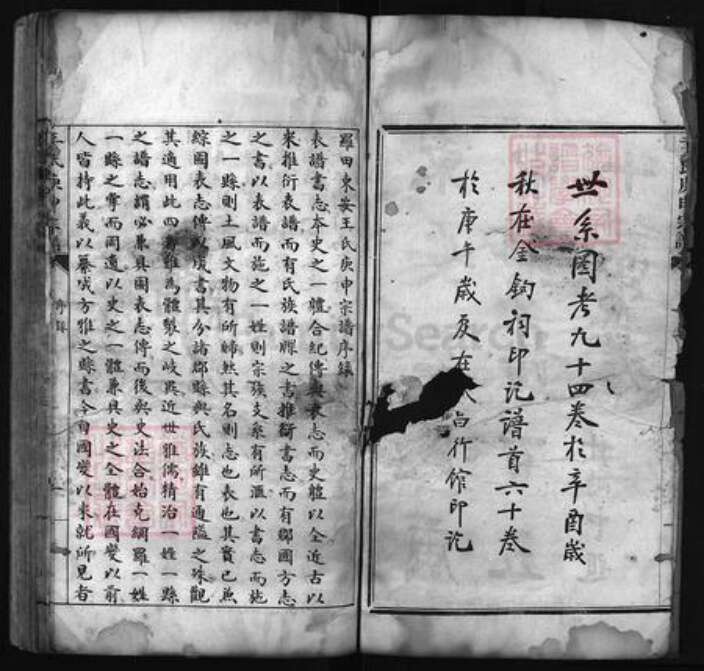 世系圖考九十四卷於辛酉歲
秋在金鉤祠印訖譜首六十卷
於庚午歲夏在 行館印訖
羅田東安王氏庚申宗譜序錄
表譜書志本史之一體合紀傳與表志而史體以全近古以
來推衍表譜而有氏族譜牒之書推衍書志而有郡國方志
之書以表譜而施之一姓則宗族支系有所滙以書志而施
之一縣則土風文物有所歸然其名則志也表也其實已兼
綜圖表志傳以成書其分諸郡縣與氏族雖有通隘之殊觀
其適用此四者雖為體製之歧異近世雅儒精治一姓一縣
之譜志謂必兼具圖表志傳而後與史法合始克綱羅一姓
一縣之事而周適以史之一體兼具史之全體在國變以前
人皆持此義以纂成方雅之縣書今自國變以來就所見者
王氏庚申宗譜
序錄